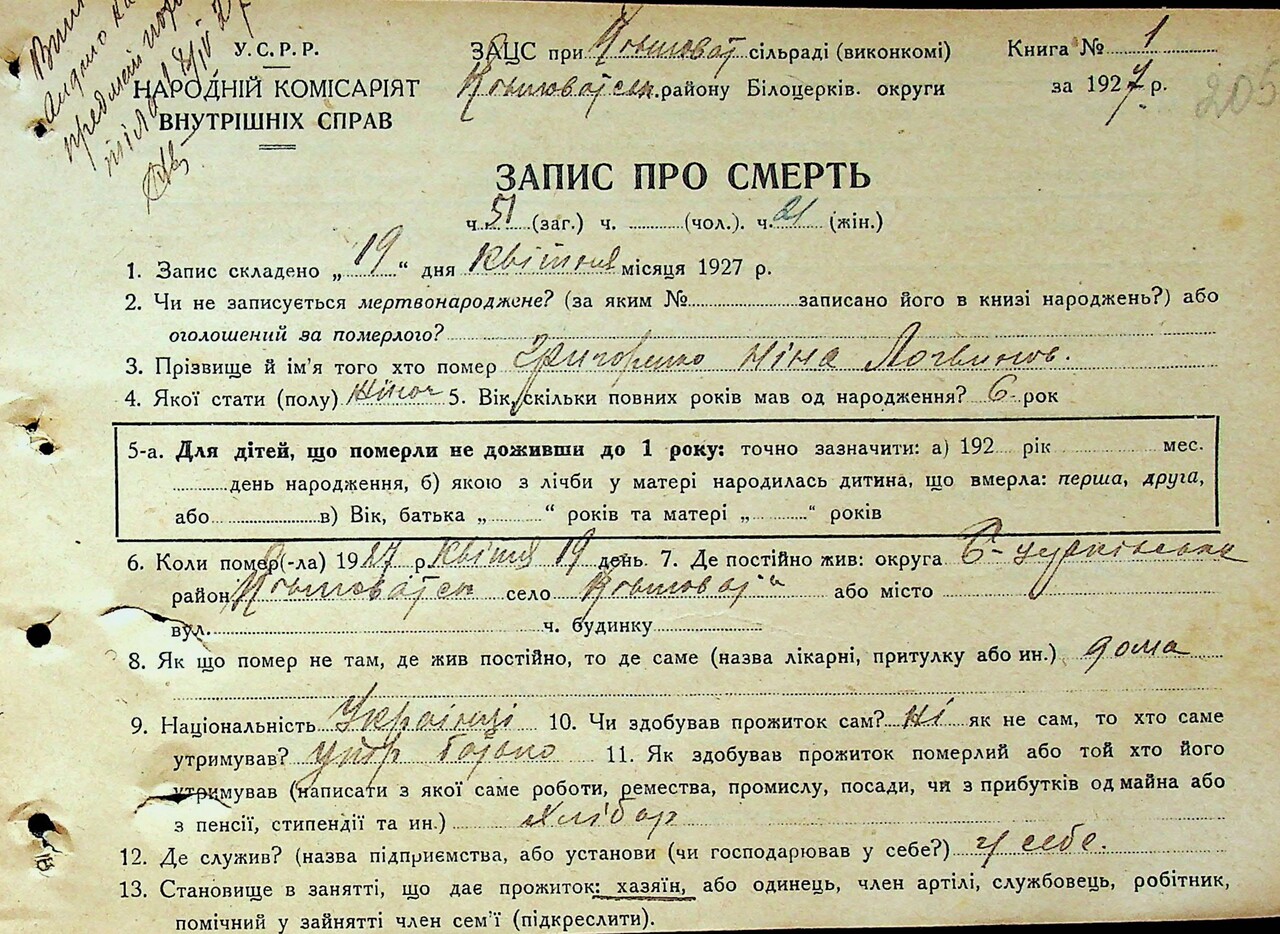 У.С.Р.Р.
НАРОДНІЙ КОМІСАРІЯТ
ВНУТРІШНІХ СПРАВ
ЗАЦС при сільраді (виконкомі)
району Білоцерків. округи
Книга № 1
за 1927 р.
205
ЗАПИС ПРО СМЕРТЬ
ч. 51 (заг.) ч. (чол.). ч. 21 (жін.)
1. Запис складено „ 19 “ дня квітня місяця 1927 р.
2. Чи не записується мертвонароджене? (за яким № записано його в книзі народжень?) або
оголошений за померлого?
3. Прізвище й ім'я того хто помер Григоренко Ніна Логвинов.
4. Якої стати (полу) жіноч 5. Вік, скільки повних років мав од народження? 6 рок
5-а. Для дітей, що померли не доживши до 1 року: точно зазначити: а) 192 рік мес.
день народження, б) якою з лічби у матері народилась дитина, що вмерла: перша, друга,
або в) Вік, батька „ “ років та матері „ “ років
6. Коли помер(-ла) 1927 р. квітня 19 день. 7. Де постійно жив: округа Б-церківська
район село або місто
вул. ч. будинку
8. Як що помер не там, де жив постійно, то де саме (назва лікарні, притулку або ин.) дома
9. Національність 10. Чи здобував прожиток сам? ні як не сам, то хто саме
утримував? утр батько 11. Як здобував прожиток померлий або той хто його
утримував (написати з якої саме роботи, ремества, промислу, посади, чи з прибутків од майна або
з пенсії, стипендії та ин.) хлібор
12. Де служив? (назва підприємства, або установи (чи господарював у себе?) у себе.
13. Становище в занятті, що дає прожиток: хазяїн, або одинець, член артілі, службовець, робітник,
помічний у зайнятті член сем'ї (підкреслити).